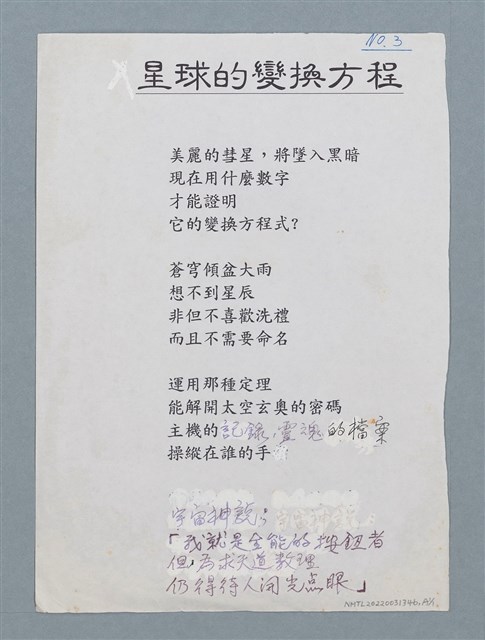 NO. 3
星球的變換方程
美麗的彗星，將墜入黑暗
現在用什麼數字
才能證明
它的變換方程式？
蒼穹傾盆大雨
想不到星辰
非但不喜歡洗禮
而且不需要命名
運用那種定理
能解開太空玄奧的密碼
主機的記錄，靈魂的檔案
操縱在誰的手
宇宙神說：
「我就是全能的按鈕者
但為求天道數理
仍得待人開光点眼」
NMTL20220031346, A1/1